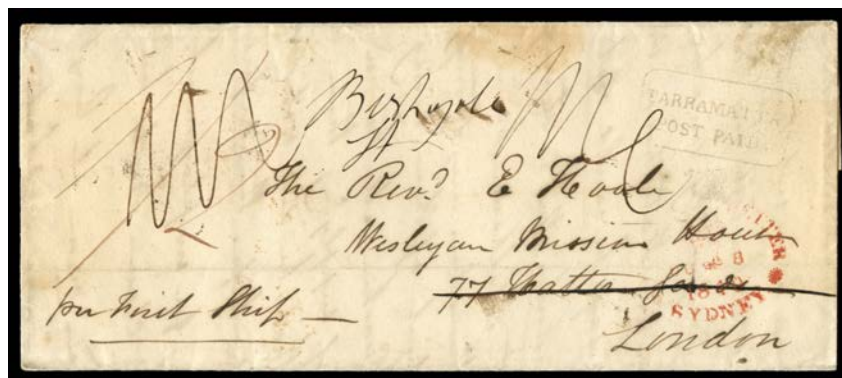 Bishopsgate
St
PARRAMATTA
POST PAID
The Revd. E Hoole
Wesleyan Mission House
77 Hatton Garden
8
SYDNEY
per First Ship —
London